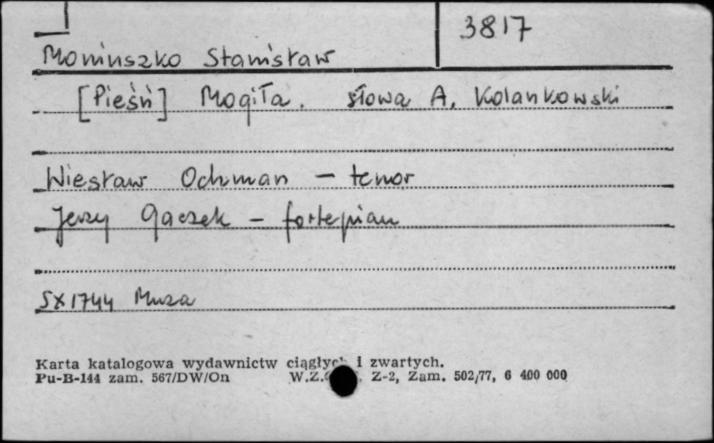 3817
Moniuszko Stanisław
[Pieśń] Mogiła. słowa A. Kolankowski
Wiesław Ochman – tenor
Jerzy Gaczek – fortepian
SX1744 Muza
Karta katalogowa wydawnictw ciągłych i zwartych.
Pu-B-144 zam. 567/DW/On W.Z. Z-2, Zam. 502/77, 6 400 000